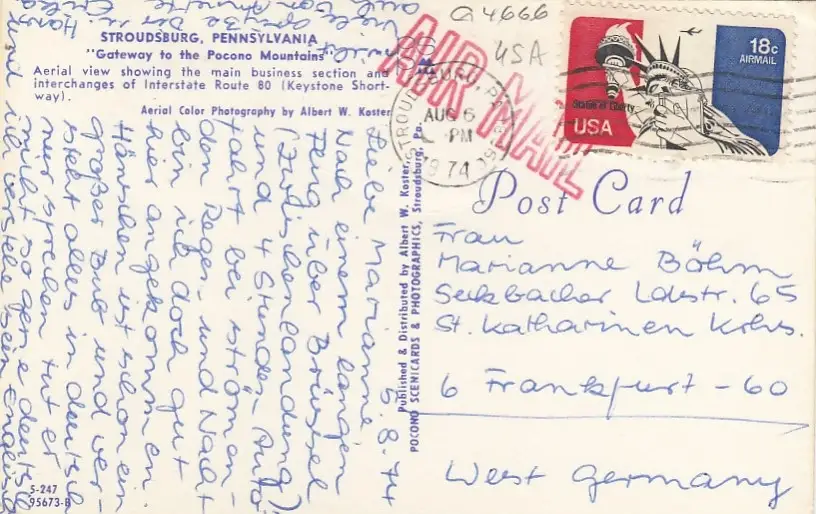 STROUDSBURG, PENNSYLVANIA
"Gateway to the Pocono Mountains"
Aerial view showing the main business section and
interchanges of Interstate Route 80 (Keystone Short-
way).
Aerial Color Photography by Albert W. Koster
5.8.74
Liebe Marianne
Nach einem langen
Flug über Brüssel
(Zwischenlandung)
und 4 Stunden-Auto
fahrt bei strömen-
den Regen, und Nacht
bin ich doch gut
hier angekommen.
Hänschen ist schon ein
großer Bub und ver-
steht alles in deutsch
nur sprechen tut er
nicht so gerne deutsch
ich verstehe sein Englisch
5-247
95673-B
Published & Distributed by Albert W. Koster,
POCONO SCENICARDS & PHOTOGRAPHICS, Stroudsburg, Pa.
Q4666
USA
AIR MAIL
STROUDSBURG, PA
AUG 6
PM
1974
18c
AIRMAIL
Statue of Liberty
USA
Post Card
Frau
Marianne Böhm
Seckbacher Ldstr. 65
St. Katharinen Krhs.
6 Frankfurt - 60
West Germany